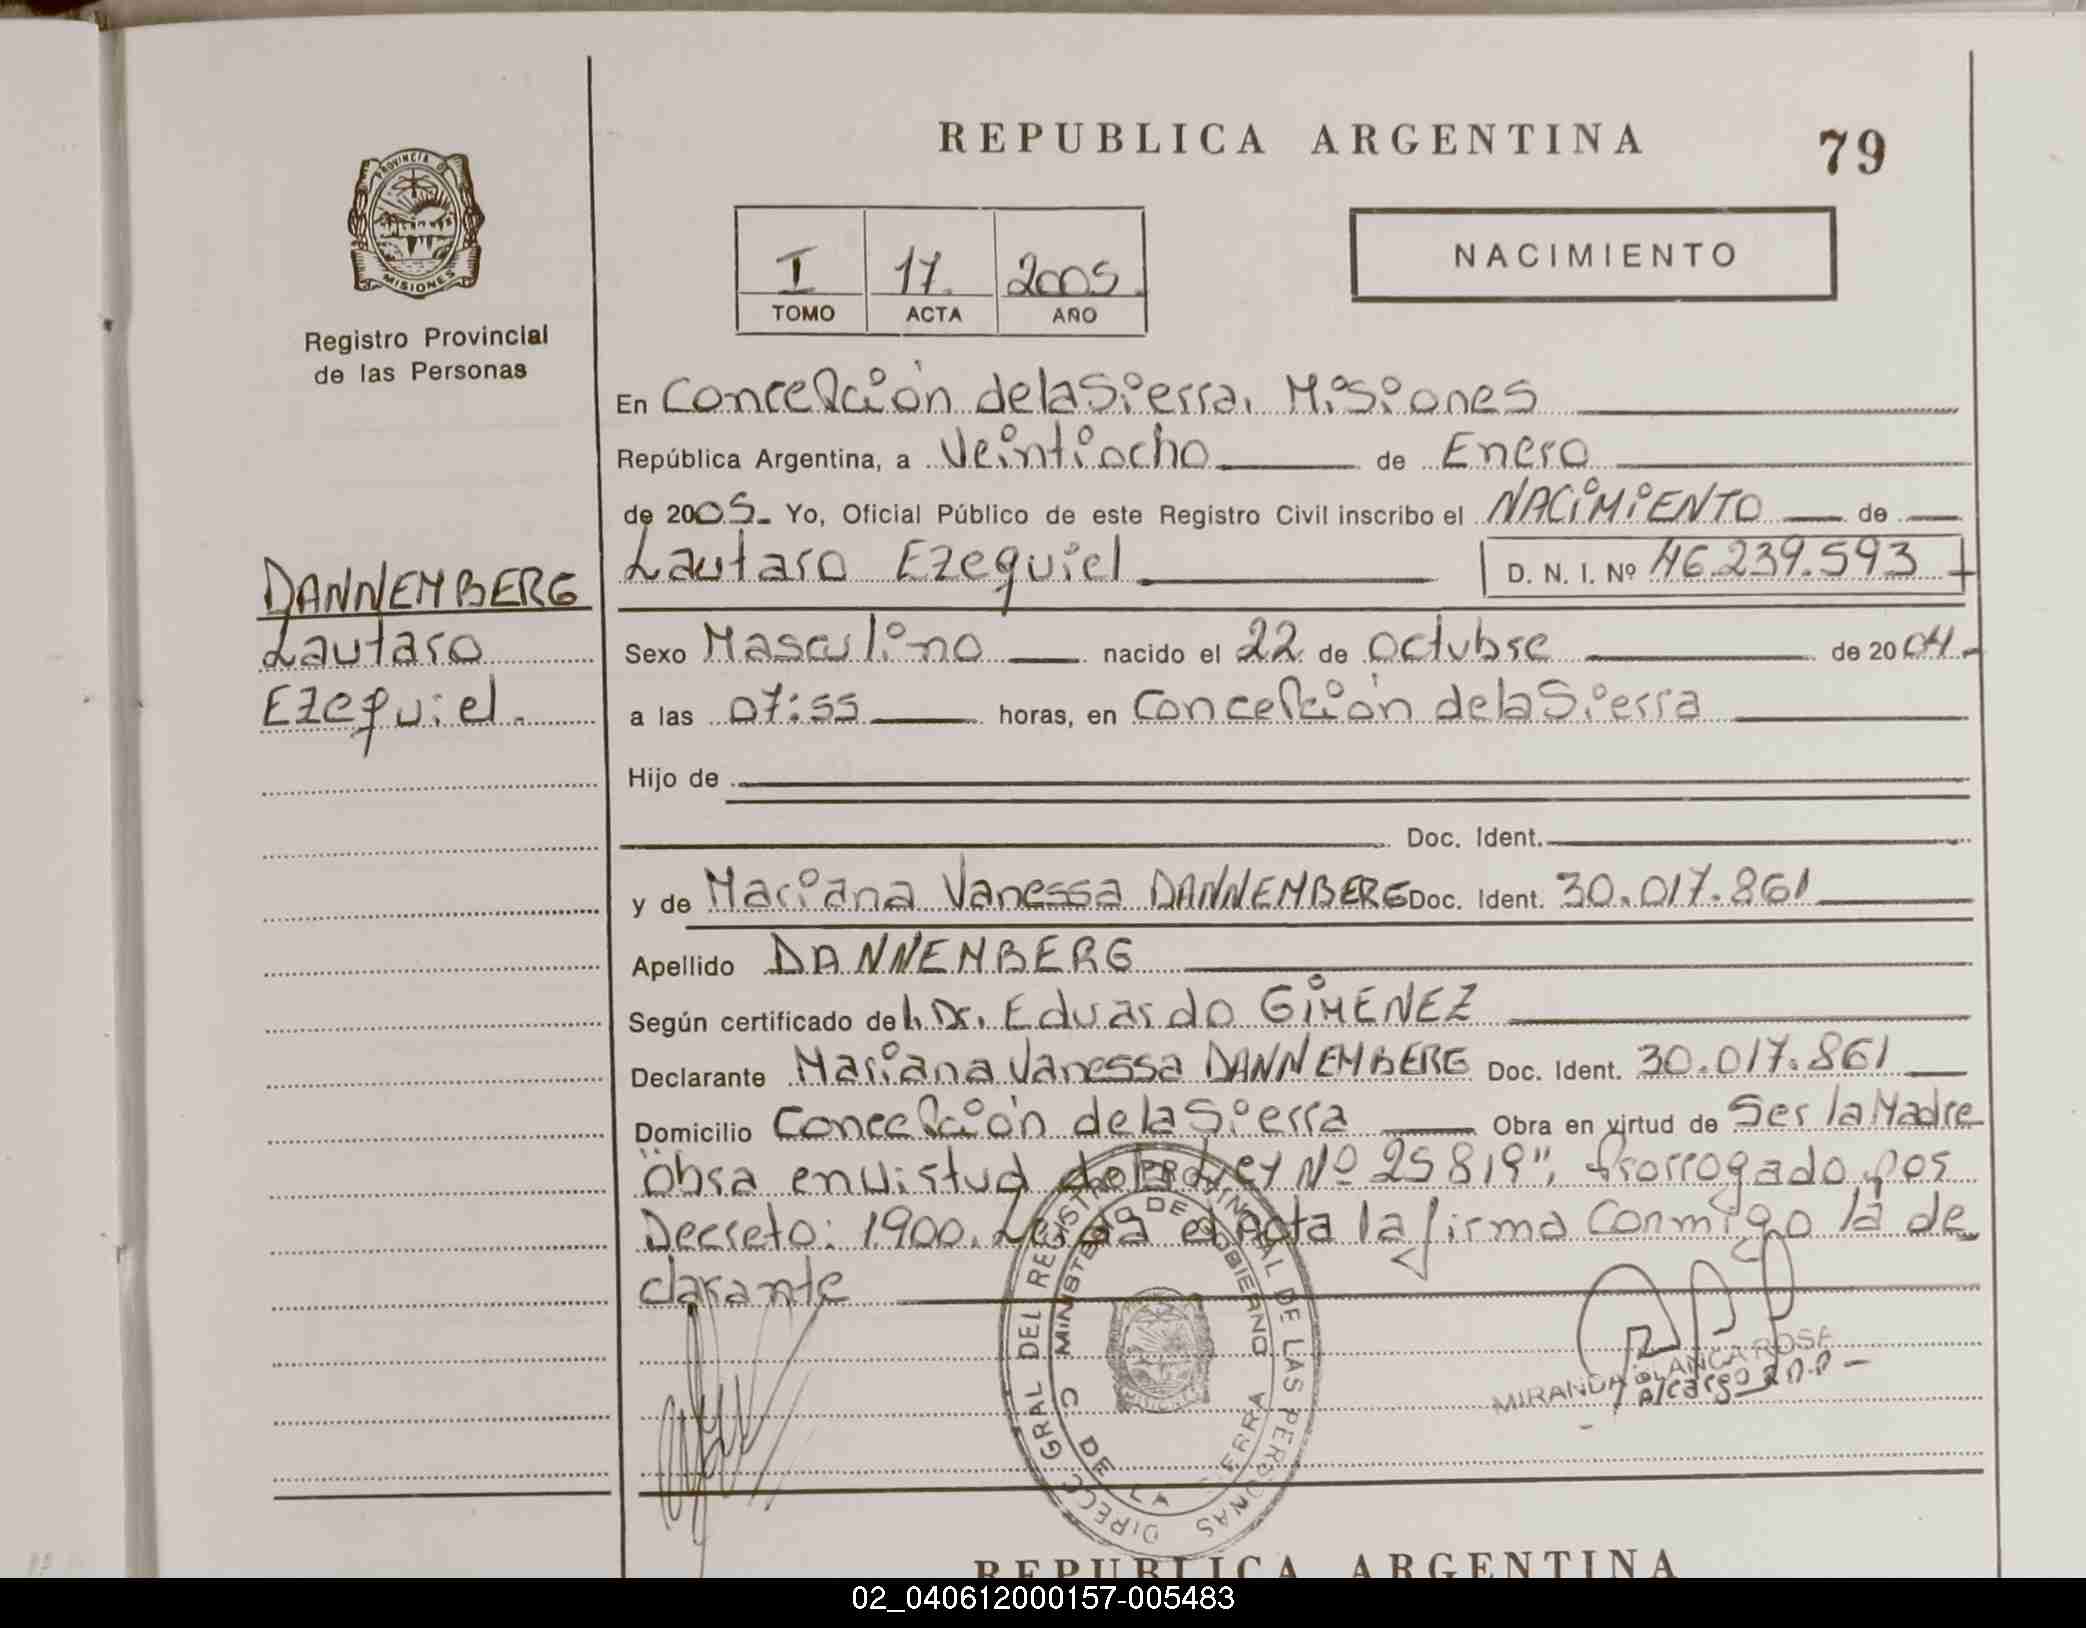 REPUBLICA ARGENTINA
79
PROVINCIA DE
MISIONES
Registro Provincial
de las Personas
I 17. 2005.
TOMO ACTA AÑO
NACIMIENTO
En Concepción de la Sierra. Misiones
República Argentina, a Veintiocho de Enero
de 2005. Yo, Oficial Público de este Registro Civil inscribo el NACIMIENTO de
Lautaro Ezequiel D. N. I. Nº 46.239.593
DANNEMBERG
Lautaro
Ezequiel.
Sexo Masculino nacido el 22 de Octubre de 2004.
a las 07:55 horas, en Concepción de la Sierra
Hijo de
Doc. Ident.
y de Mariana Vanessa DANNEMBERG Doc. Ident. 30.017.861
Apellido DANNEMBERG
Según certificado del. Dr. Eduardo GiMENEZ
Declarante Mariana Vanessa DANNEMBERG Doc. Ident. 30.017.861
Domicilio Concepción de la Sierra Obra en virtud de Ser la Madre
"Obra en virtud de la Ley Nº 25819", Prorrogado por
Decreto: 1.900. Leída el Acta la firma Conmigo la de
clarante
DIRECC GRAL DEL REGISTRO PROVINCIAL DE LAS PERSONAS
MINISTERIO DE GOBIERNO
C DE LA SIERRA
MIRANDA BLANCA ROSA
A/cargo
REPUBLICA ARGENTINA
02_040612000157-005483